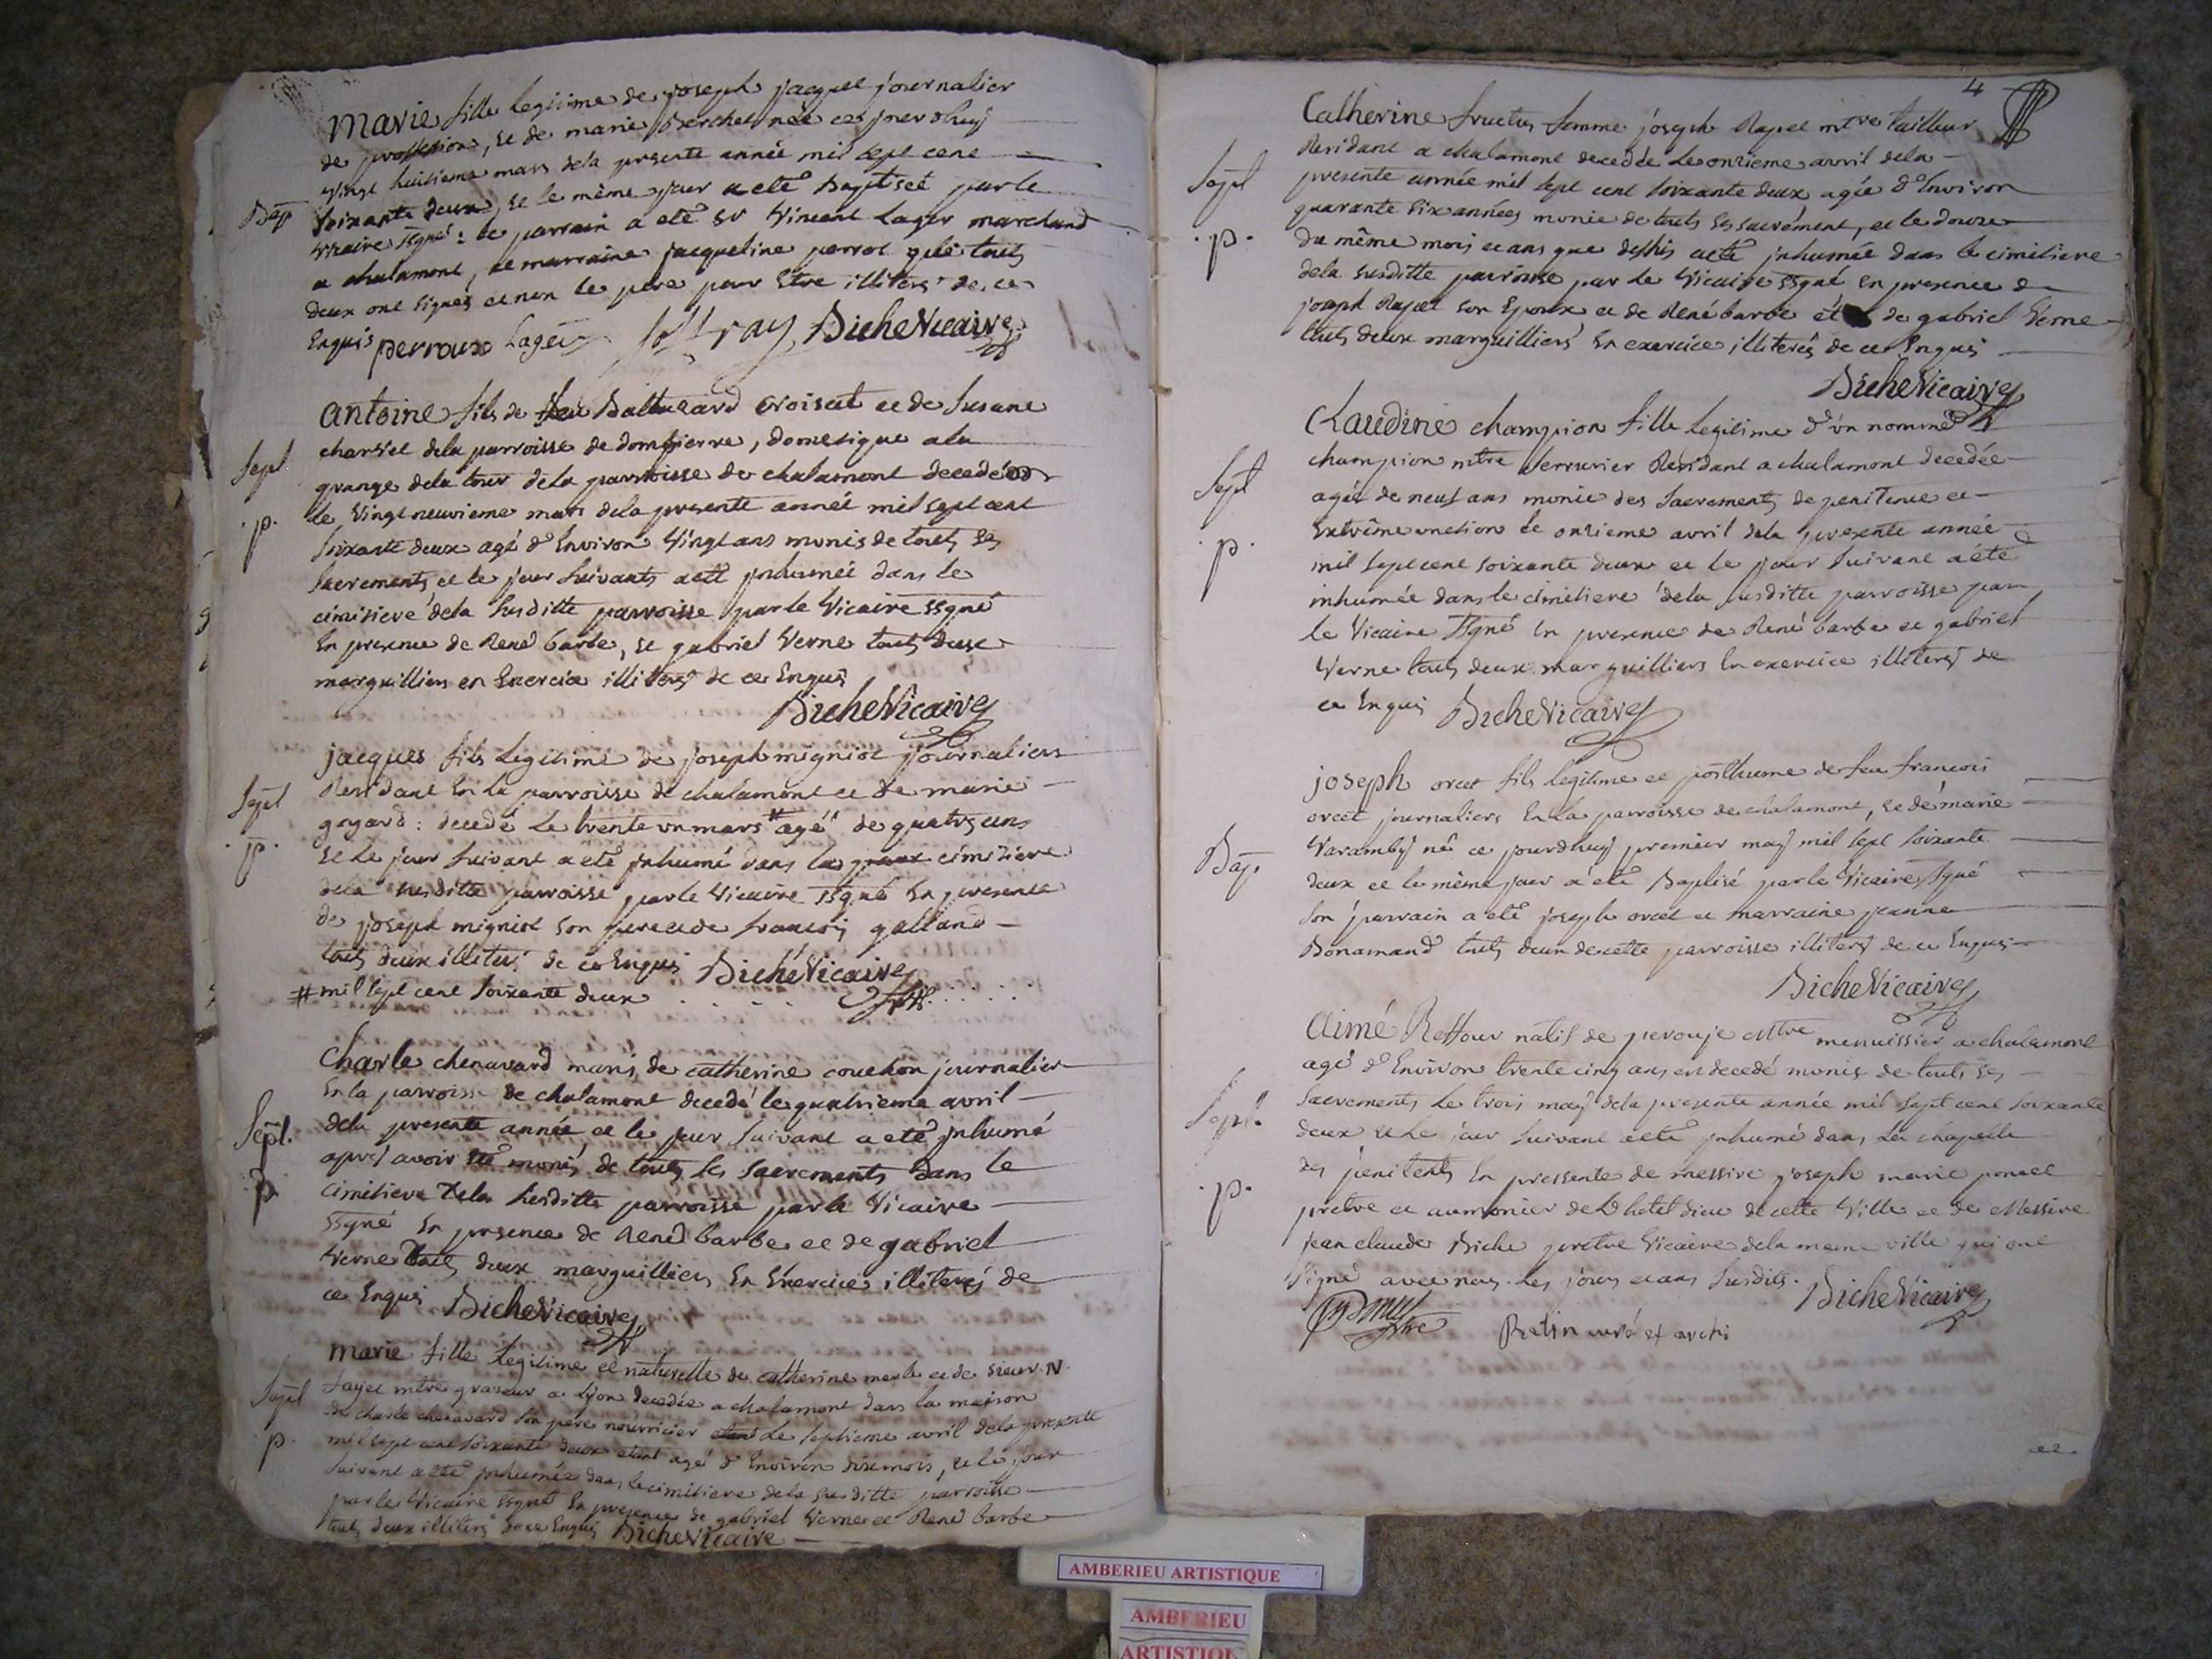 Marie fille legitime de joseph jacquet journalier
de proffession, et de marie Berchet née ce jourdhuy
vingt huitieme mars dela presente année mil sept cent
Bap
soixante deux, et le même jour a eté Baptisée par le
vicaire ssgné: le parrain a eté sr Vincent Lager marchand
a chalamont, et marraine jacqueline perrot qui touts
deux ont signés et non le pere pour Etre illiteré de ce
Enquis perroux Lager Biche Vicaire
antoine fils de feu Baltazard croisat et de Susane
charvet dela parroisse de dompierre, domesique ala
Sept
grange dela tour dela parroisse de chalamont decedé
le vingt neuvieme mars dela presente année mil sept cent
.p.
soixante deux agé d'Environ vingt ans munis de touts ses
sacrements, et le jour suivants a eté jnhumé dans le
cimitiere dela susditte parroisse par le vicaire ssgné
En presence de René barbe, et gabriel verne touts deux
marguilliers en Exercice illiterés de ce Enquis
Biche Vicaire
jacques fils legitime de joseph migniot journaliers
Sept
Residant En la parroisse de chalamont et de marie
goyard: decedé le trente un mars # agé de quatre ans
.p.
et le jour suivant a eté jnhumé dans la cimitiere
dela susditte parroisse par le vicaire ssgné En presence
de joseph migniot son pere et de francois galland
touts deux illiterés de ce Enquis Biche Vicaire
# mil sept cent soixante deux
Charle chenavard maris de catherine couchon journalier
En la parroisse de chalamont decedé le quatrieme avril
Sept.
dela presente année et le jour suivant a eté jnhumé
aprés avoir eté munis de touts les sacrements dans le
p
cimitiere dela susditte parroisse par le vicaire
ssgné En presence de René barbe et de gabriel
verne touts deux marguilliers En Exercice illiterés de
ce Enquis Biche Vicaire
marie fille legitime et naturelle de catherine merle et de sieur N.
Sept
fayet mtre graveur a lyon decedée a chalamont dans la maison
de charle chenavard son pere nourricier le septieme avril dela presente
p.
mil sept cent soixante deux etant agé d'Environ dix mois, et le jour
suivant a eté jnhumée dans le cimitiere dela susditte parroisse
par le vicaire ssgné En presence de gabriel verne et René barbe
touts deux illiterés de ce Enquis Biche Vicaire
4
Catherine fructus femme joseph Rapet mtre tailleur
Residant a chalamont decedée le onzieme avvril dela
Sept
presente année mil sept cent soixante deux agée d'Environ
quarante six années munie de touts ses sacrément, et le douze
.p.
du même mois et ans que dessus a eté jnhumée dans le cimitiere
dela susditte parroisse par le vicaire ssgné En presence de
joseph Rapet son Epoux et de René barbe et de gabriel verne
touts deux marguilliers En exercice illiterés de ce Enquis
Biche Vicaire
Claudine champion fille legitime d'un nommé
champion mtre serrurier Residant a chalamont decedée
Sept
agée de neuf ans munie des sacrements de penitence et
.p.
extrême onction le onzieme avril dela presente année
mil sept cent soixante deux et le jour suivant a été
inhumée dans le cimetiere dela susditte parroisse par
le vicaire ssgné En presence de René barbe et gabriel
verne touts deux marguilliers En exercice illiterés de
ce Enquis Biche Vicaire
joseph orcet fils legitime et posthume de feu francois
orcet journaliers En la parroisse de chalamont, et de marie
varamby né ce jourdhuy premier may mil sept soixante
Bap.
deux et le même jour a eté Baptisé par le vicaire ssgné
son parrain a eté joseph orcet et marraine jeanne
Bonamand touts deux de cette parroisse illiterés de ce Enquis
Biche Vicaire
Aimé Retfour natif de perouje mtre menuissier a chalamont
agé d'Environ trente cinq ans est decedé munis de touts ses
Sept.
sacrements le trois may dela presente année mil sept cent soixante
deux et le jour suivant a eté jnhumé dans la chapelle
des penitents En pressente de messire joseph marie poncet
.p.
pretre et aumonier de L'hotel dieu de cette ville et de Messire
jean claude Biche pretre vicaire dela meme ville qui ont
signé avec nous les jours et ans susdits. Biche Vicaire
ptre Retin curé et archi
et
AMBERIEU ARTISTIQUE
AMBERIEU
ARTISTIQ